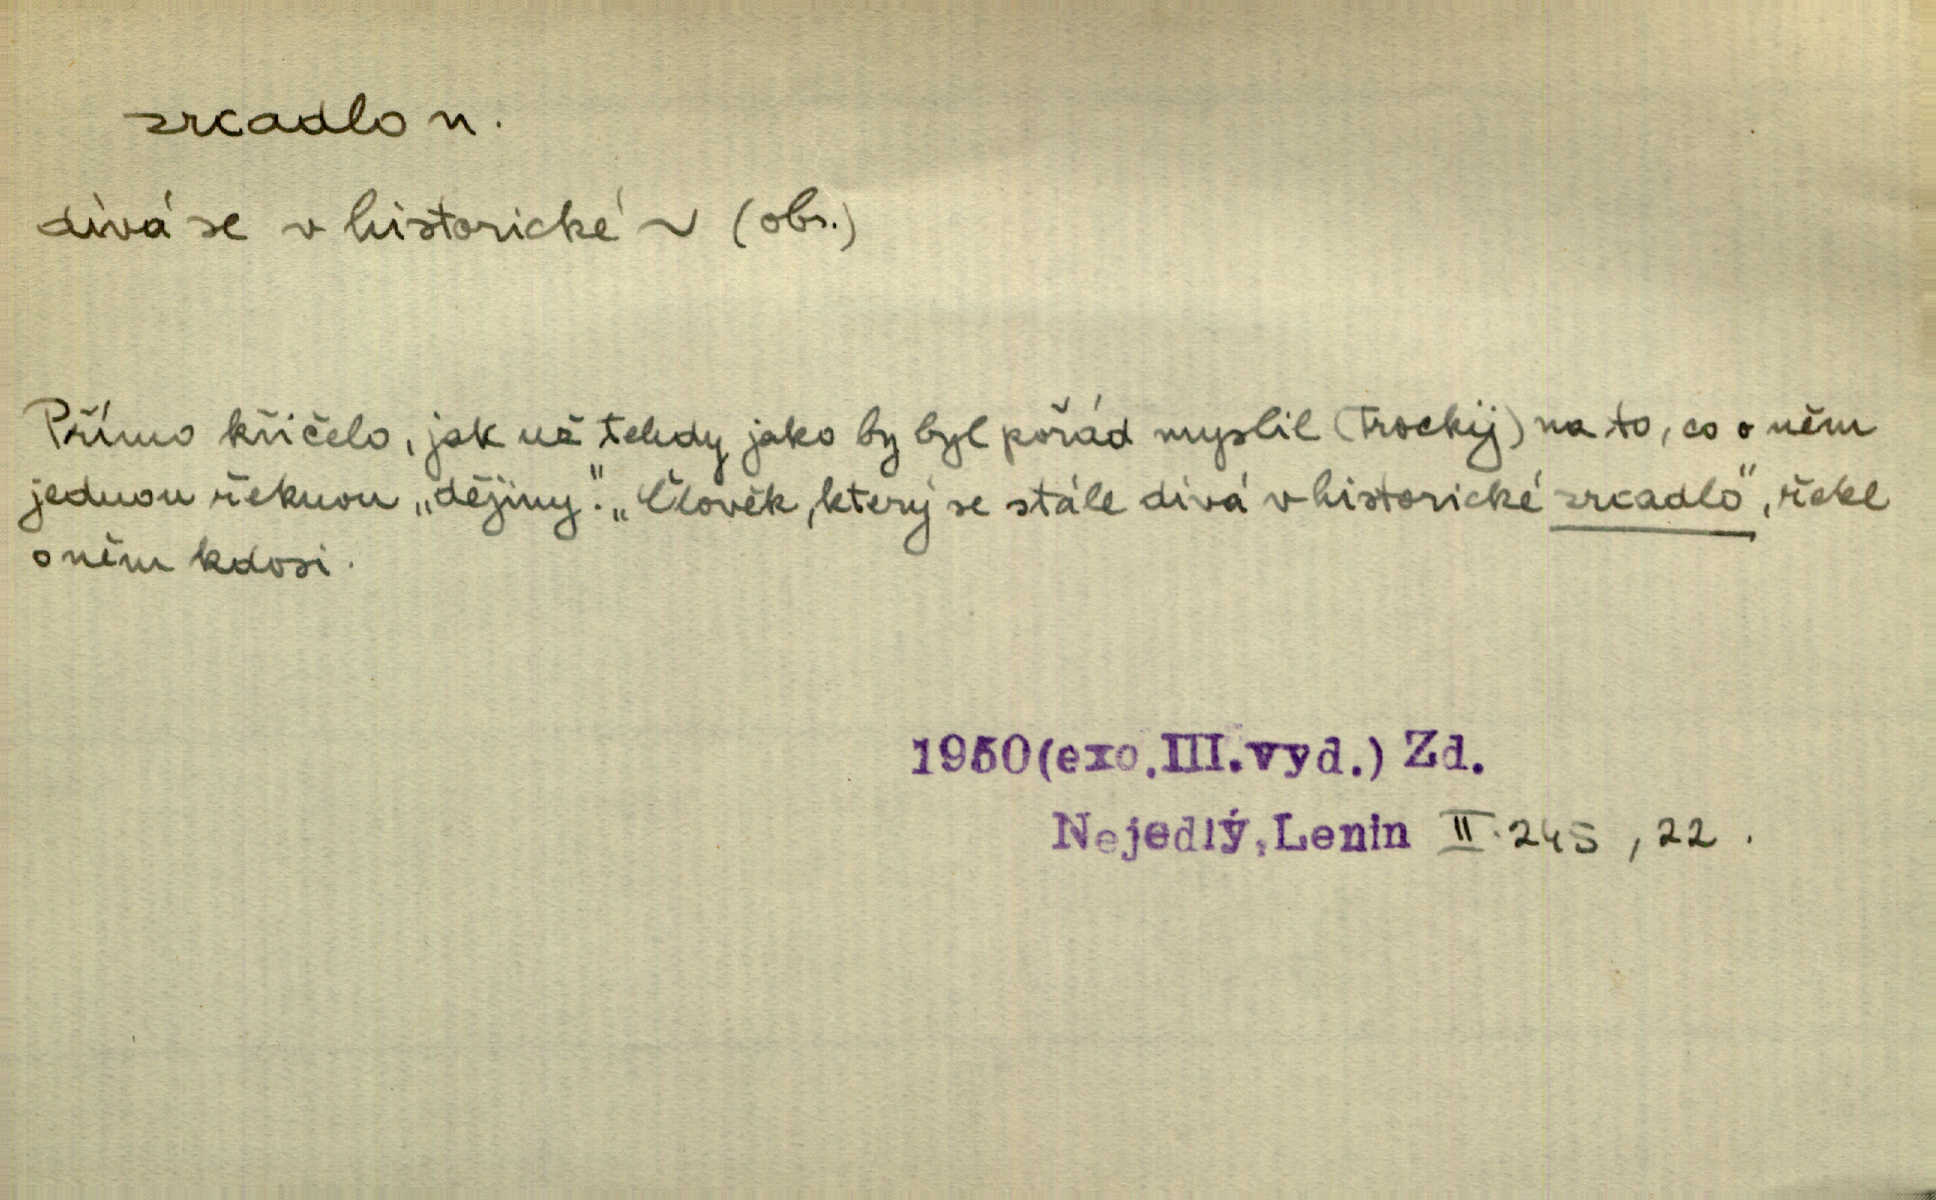 zrcadlo n.
dívá se v historické ~ (obr.)
Přímo křičelo, jak už tehdy jako by byl pořád myslil (Trockij) na to, co o něm
jednou řeknou „dějiny“. „Člověk, který se stále dívá v historické zrcadlo“, řekl
o něm kdosi.
1950(exc.III.vyd.) Zd.
Nejedlý, Lenin II. 245, 22.